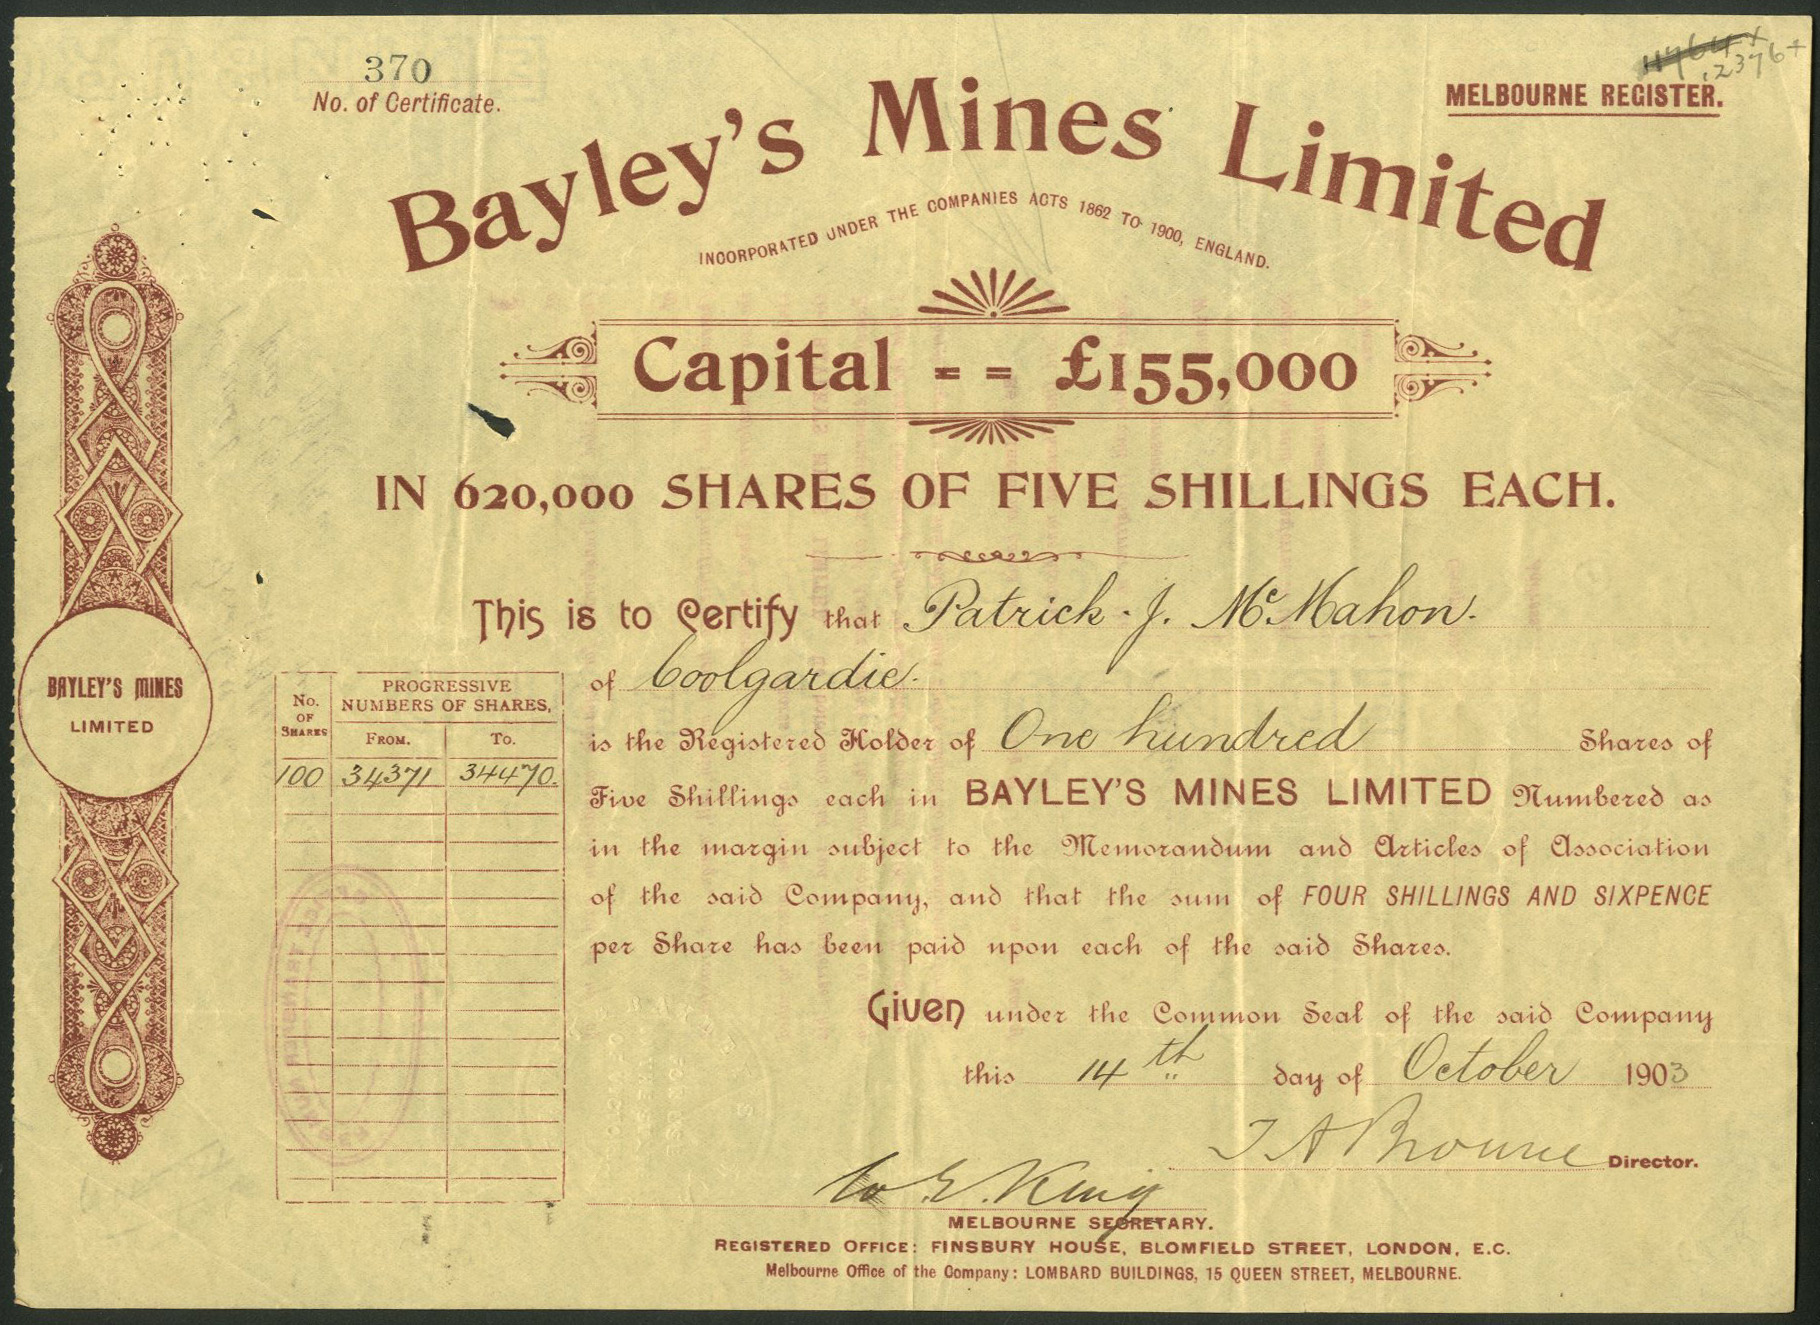 370
No. of Certificate.
12376+
MELBOURNE REGISTER.
Bayley's Mines Limited
INCORPORATED UNDER THE COMPANIES ACTS 1862 TO 1900, ENGLAND.
Capital = = £155,000
IN 620,000 SHARES OF FIVE SHILLINGS EACH.
This is to Certify that Patrick J. McMahon.
of Coolgardie.
is the Registered Holder of One hundred Shares of
Five Shillings each in BAYLEY'S MINES LIMITED Numbered as
in the margin subject to the Memorandum and Articles of Association
of the said Company, and that the sum of FOUR SHILLINGS AND SIXPENCE
per Share has been paid upon each of the said Shares.
No. OF SHARES
PROGRESSIVE
NUMBERS OF SHARES,
FROM. TO.
100 34371 34470.
BAYLEY'S MINES
LIMITED
Given under the Common Seal of the said Company
this 14th day of October 1903
T A Browne Director.
W E. King
MELBOURNE SECRETARY.
REGISTERED OFFICE: FINSBURY HOUSE, BLOMFIELD STREET, LONDON, E.C.
Melbourne Office of the Company: LOMBARD BUILDINGS, 15 QUEEN STREET, MELBOURNE.